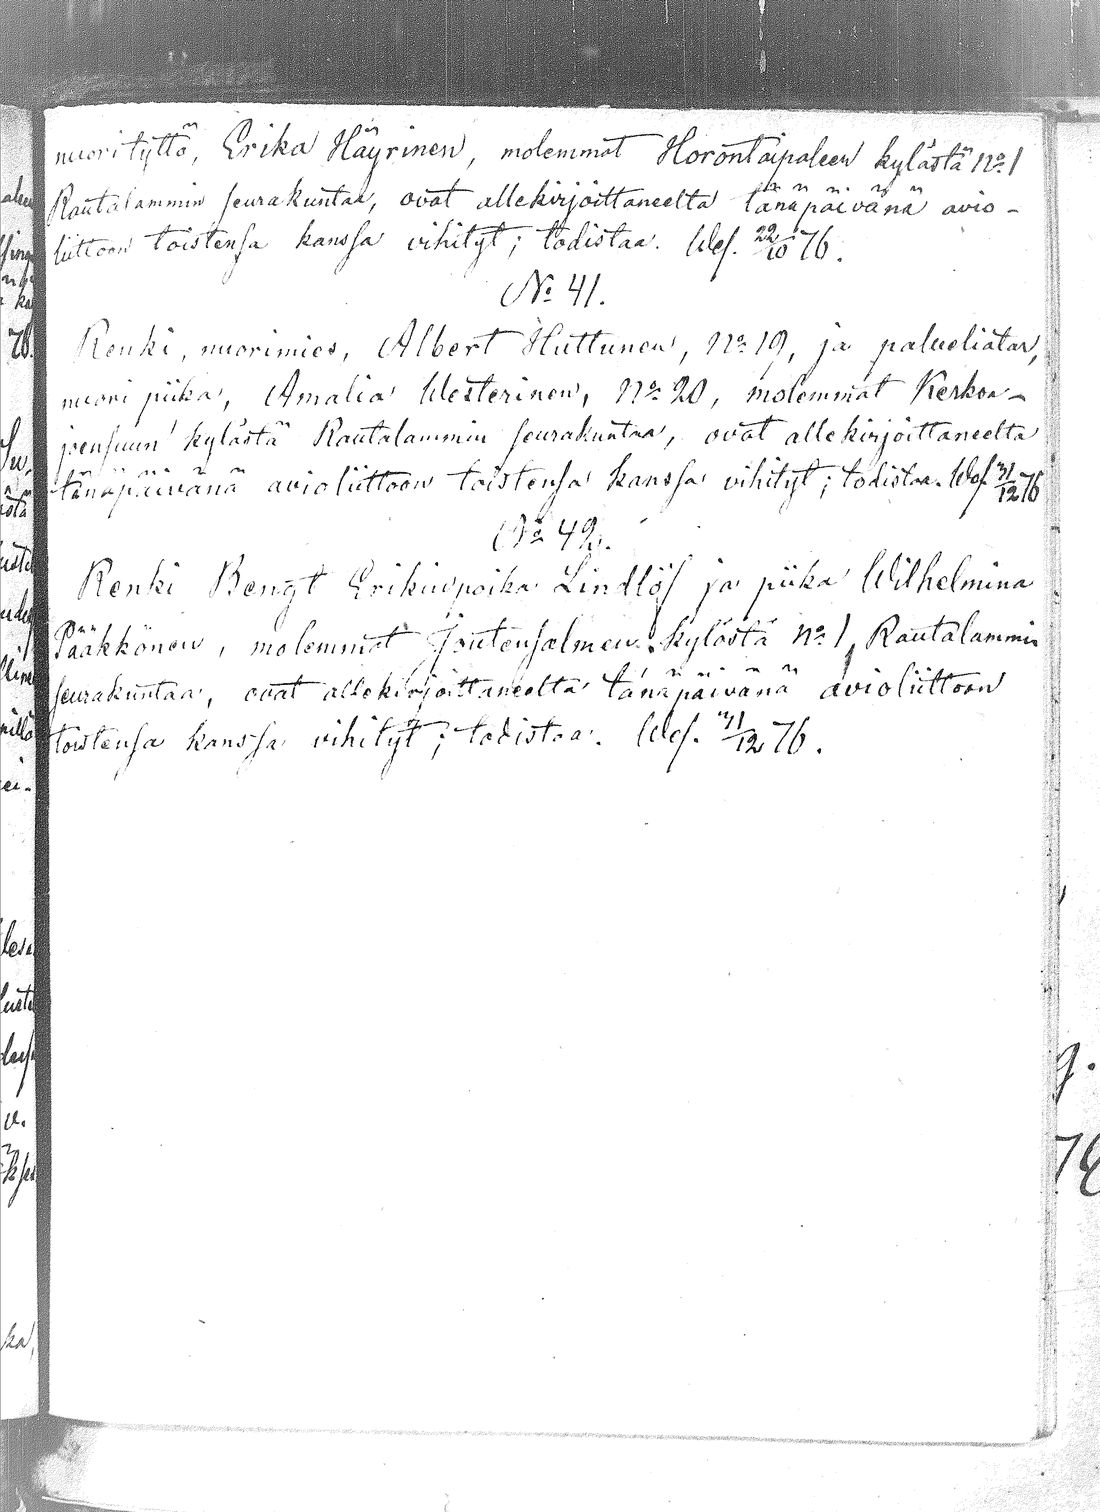 nuori tyttö, Erika Häyrinen, molemmat Horontaipaleen kylästä No 1
Rautalammin seurakuntaa, ovat allekirjoittaneelta tänäpäivänä avio-
liittoon toistensa kanssa vihityt; todistaa. Wsf. 22/10 76.
No 41.
Renki, nuorimies, Albert Huttunen, No 19, ja palveliatar,
nuori piika, Amalia Westerinen, No 20, molemmat Kerkon-
joensuun kylästä Rautalammin seurakuntaa, ovat allekirjoittaneelta
tänäpäivänä avioliittoon toistensa kanssa vihityt; todistaa. Wsf. 31/12 76
No 42.
Renki Bengt Erikinpoika Lindlöf ja piika Wilhelmina
Pääkkönen, molemmat Joutensalmen kylästä No 1, Rautalammin
seurakuntaa, ovat allekirjoittaneelta tänäpäivänä avioliittoon
toistensa kanssa vihityt; todistaa. Wsf. 31/12 76.